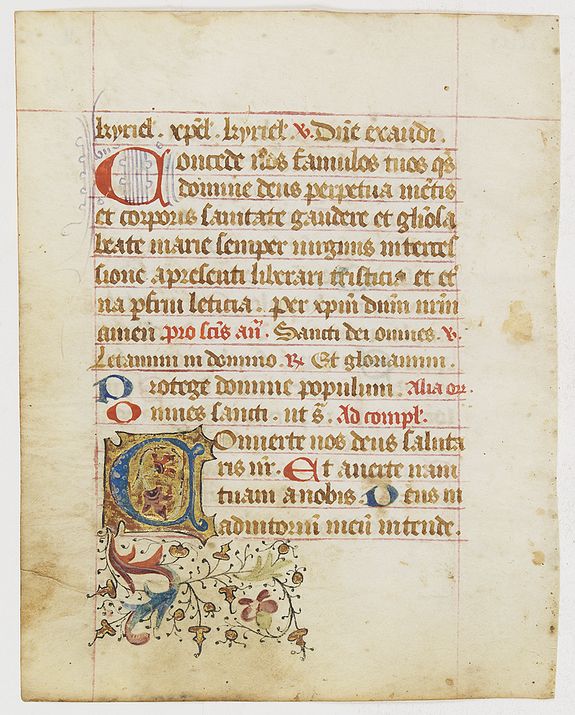 kyriel. xpel. kyriel. v. Dne exaudi.
Concede nos famulos tuos qs
domine deus perpetua mentis
et corporis sanitate gaudere et gliosa
beate marie semper uirginis interces
sione a presenti liberari tristicia et et
na pfrui leticia. per xpm dnm nrm
amen pro scis an. Sancti dei omnes. v.
Letamini in domino. R. Et gloriamini.
Protege domine populum. Alia or.
Omnes sancti. ut s. Ad compl.
Conuerte nos deus saluta
ris nr. Et auerte iram
tuam a nobis. Deus in
adiutoriu meu intende.